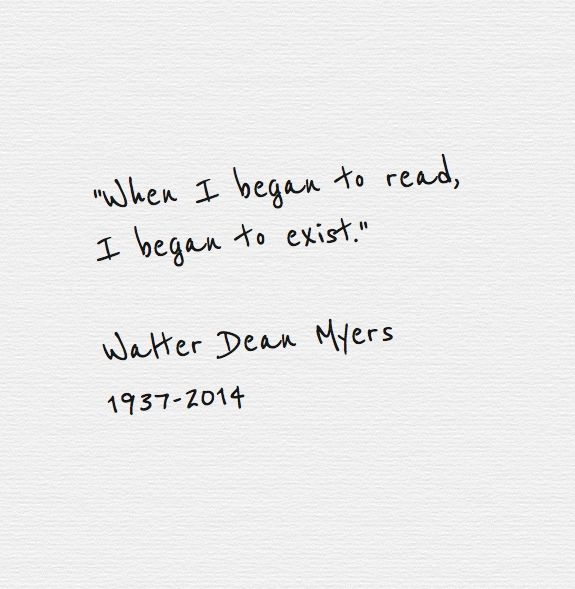 "When I began to read,
I began to exist."
Walter Dean Myers
1937-2014